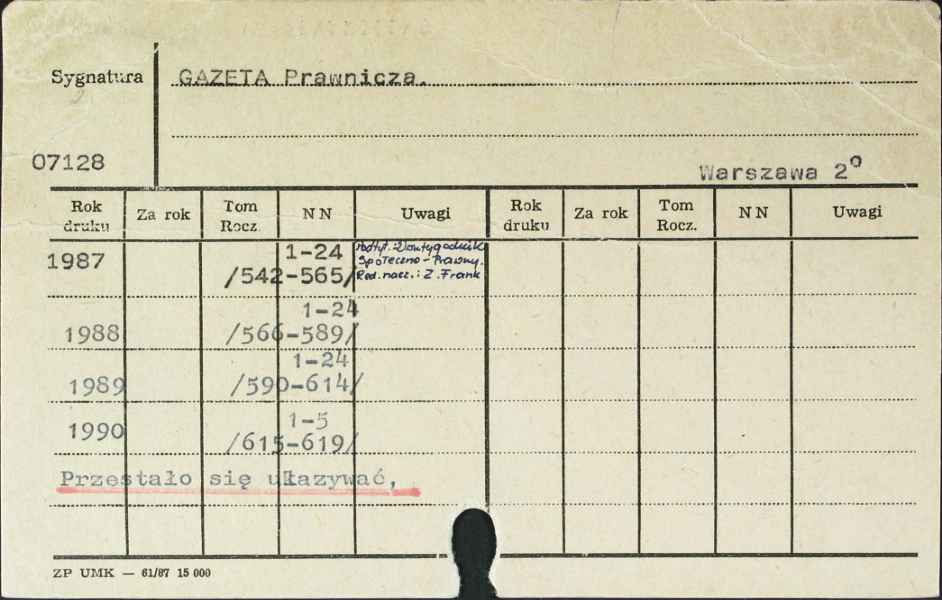 Sygnatura GAZETA Prawnicza.
07128
Warszawa 2°
Rok druku Za rok Tom Rocz. NN Uwagi Rok druku Za rok Tom Rocz. NN Uwagi
1987 1-24
/542-565/
Podtyt.: Dwutygodnik
Społeczno-Prawny.
Red. nacz.: Z. Frank
1-24
1988 /566-589/
1-24
1989 /590-614/
1-5
1990 /615-619/
Przestało się ukazywać,
ZP UMK — 61/87 15 000